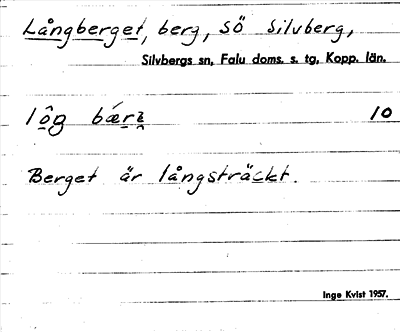 Långberget, berg, sö Silvberg,
Silvbergs sn, Falu doms. s. tg, Kopp. län.
10
Berget är långsträckt.
Inge Kvist 1957.